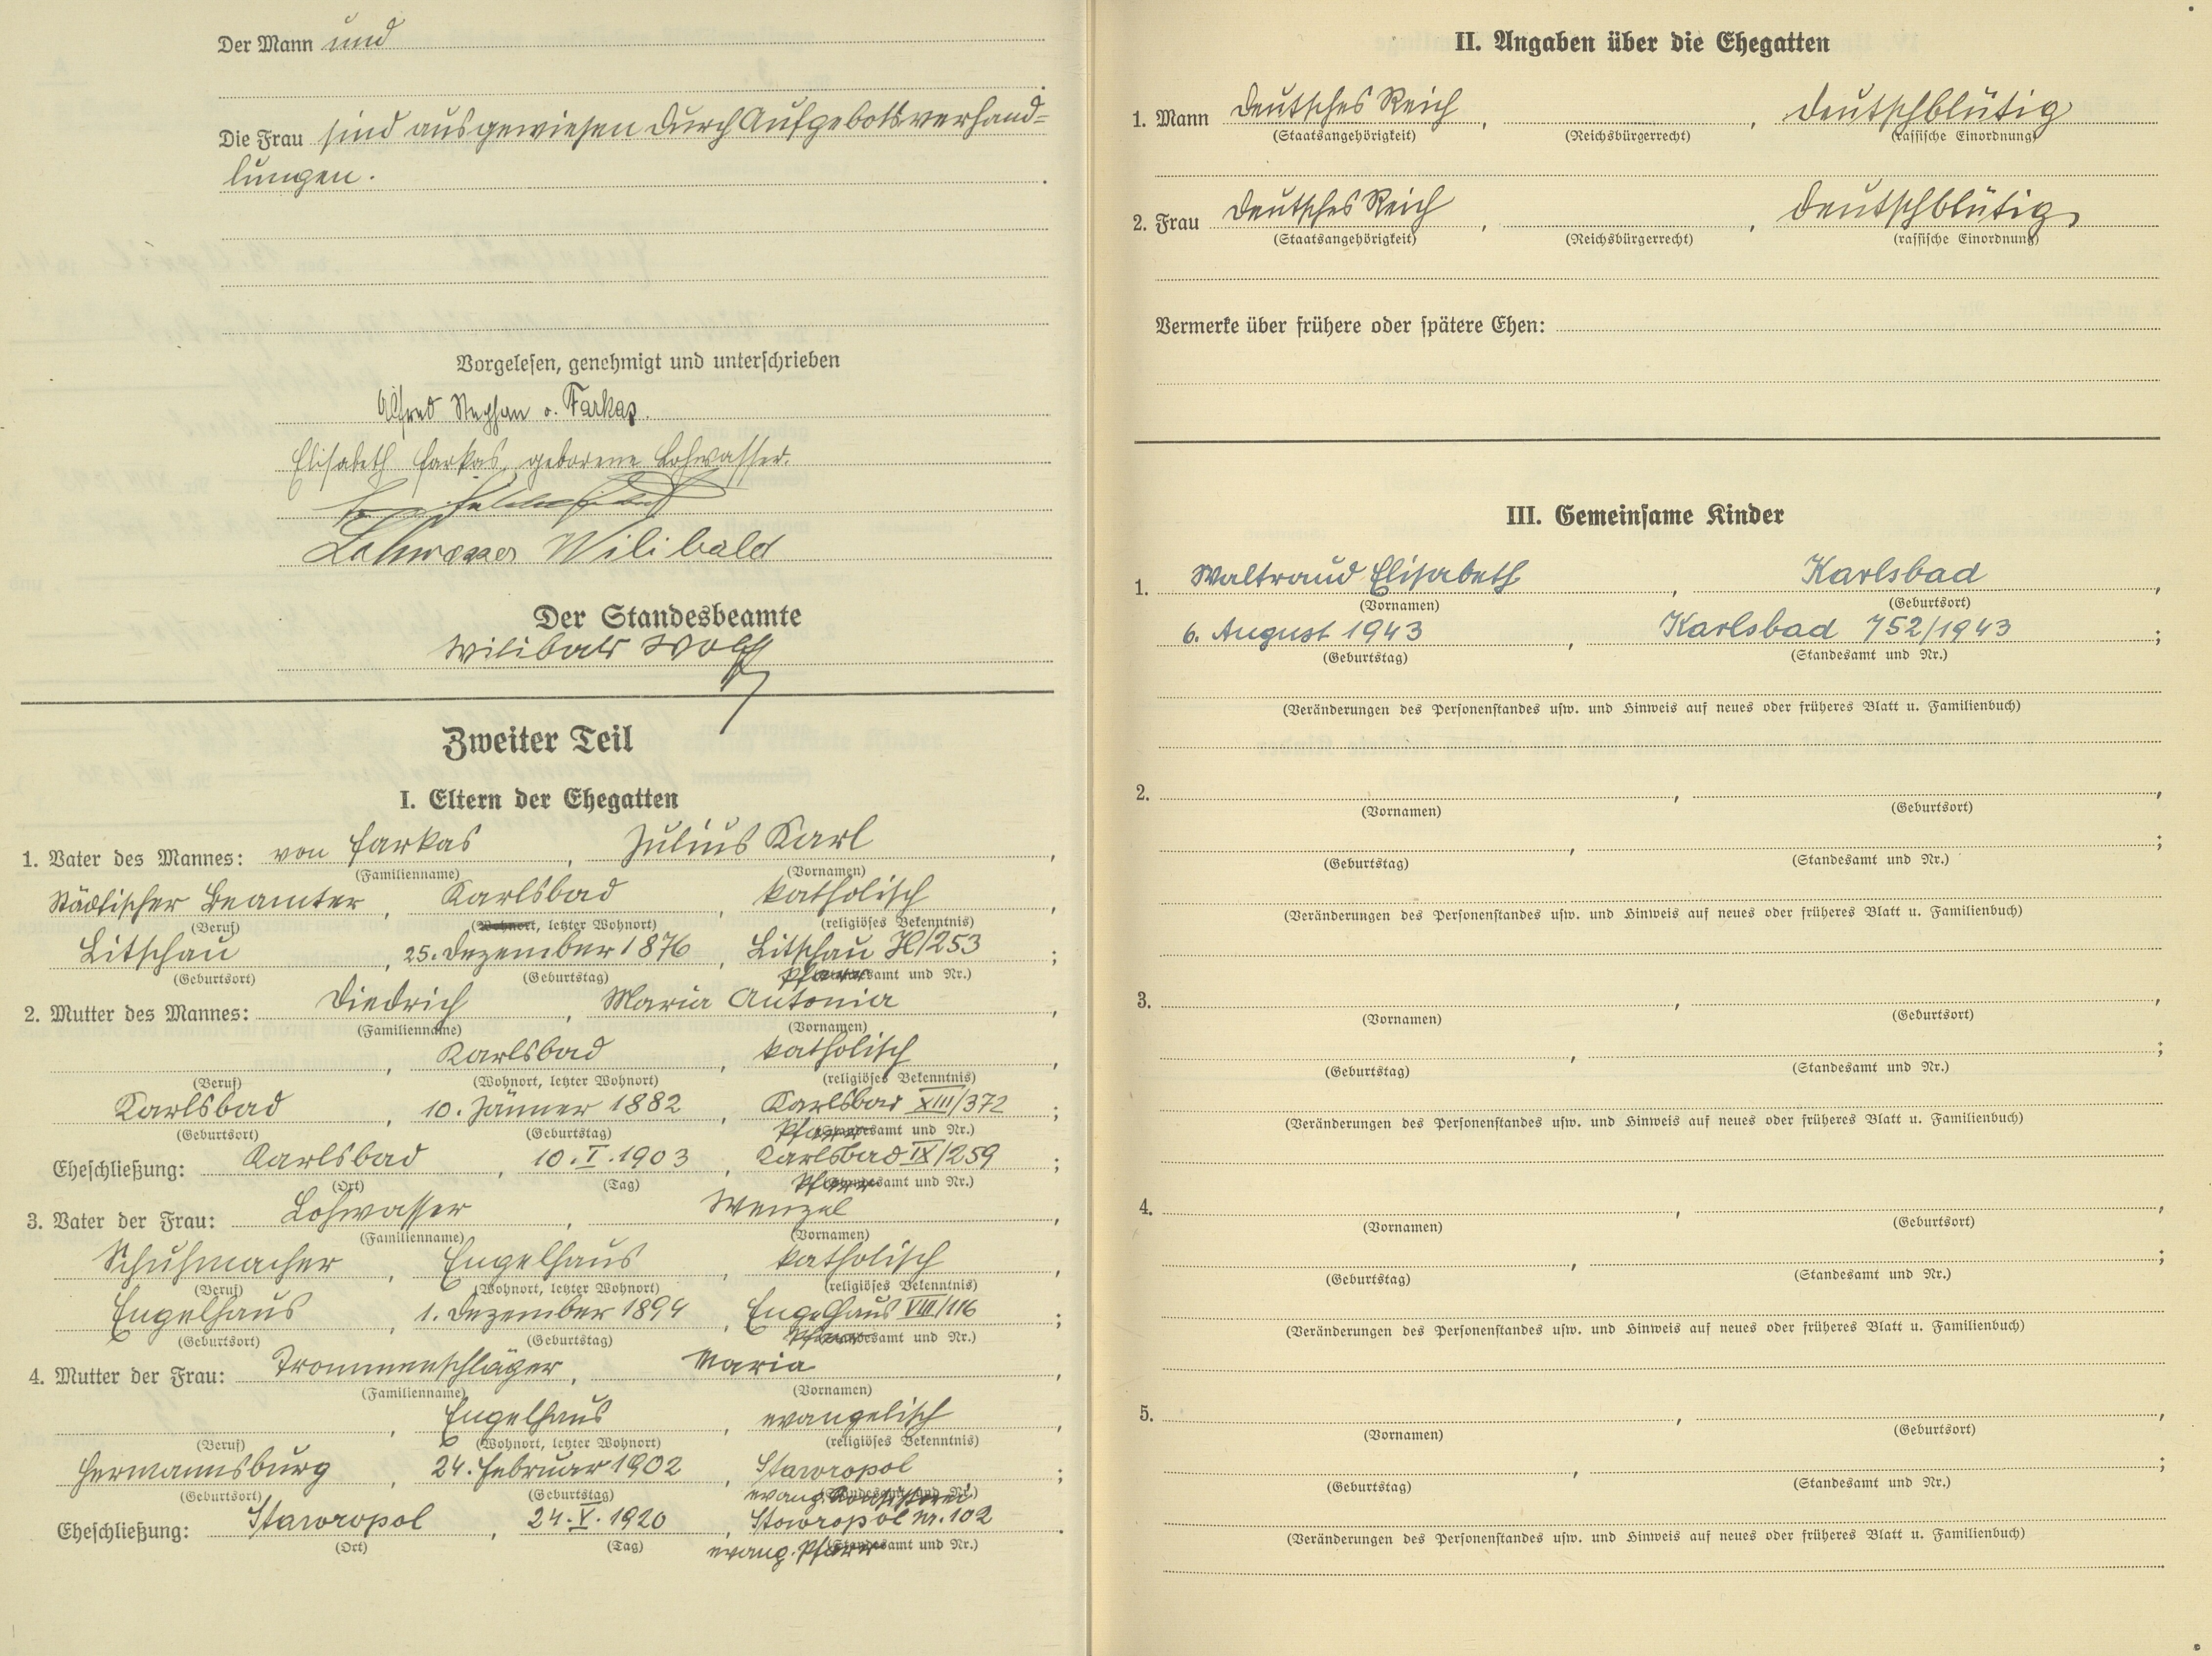 Der Mann und
Die Frau sind ausgewiesen durch Aufgebotsverhand=
lungen.
Vorgelesen, genehmigt und unterschrieben
Alfred Stephan v. Farkas.
Elisabeth Farkas, geborene Lohwasser.
Lohwasser Wilibald
Der Standesbeamte
Wilibald Wolf
Zweiter Teil
I. Eltern der Ehegatten
1. Vater des Mannes: von Farkas, Julius Karl,
(Familienname) (Vornamen)
Städtischer Beamter, Karlsbad, katholisch,
(Beruf) (Wohnort, letzter Wohnort) (religiöses Bekenntnis)
Litschau, 25. Dezember 1876, Litschau /253;
(Geburtsort) (Geburtstag) Pfarramt und Nr.)
2. Mutter des Mannes: Diedrich, Maria Antonia,
(Familienname) (Vornamen)
, Karlsbad, katholisch,
(Beruf) (Wohnort, letzter Wohnort) (religiöses Bekenntnis)
Karlsbad, 10. Jänner 1882, Karlsbad XIII/372;
(Geburtsort) (Geburtstag) Pfarramt und Nr.)
Eheschließung: Karlsbad, 10. I. 1903, Karlsbad IX/259;
(Ort) (Tag) Pfarramt und Nr.)
3. Vater der Frau: Lohwasser, Wenzel,
(Familienname) (Vornamen)
Schuhmacher, Engelhaus, katholisch,
(Beruf) (Wohnort, letzter Wohnort) (religiöses Bekenntnis)
Engelhaus, 1. Dezember 1894, Engelhaus VIII/116;
(Geburtsort) (Geburtstag) Pfarramt und Nr.)
4. Mutter der Frau: Trommenschläger, Maria,
(Familienname) (Vornamen)
, Engelhaus, evangelisch,
(Beruf) (Wohnort, letzter Wohnort) (religiöses Bekenntnis)
Hermannsburg, 24. Februar 1902, Stawropol;
(Geburtsort) (Geburtstag) evang. (Standesamt und Nr.)
Eheschließung: Stawropol, 24. V. 1920, Stawropol nr. 102.
(Ort) (Tag) evang. Pfarramt und Nr.)
II. Angaben über die Ehegatten
1. Mann Deutsches Reich, , deutschblütig
(Staatsangehörigkeit) (Reichsbürgerrecht) (rassische Einordnung)
2. Frau Deutsches Reich, , deutschblütig
(Staatsangehörigkeit) (Reichsbürgerrecht) (rassische Einordnung)
Vermerke über frühere oder spätere Ehen:
III. Gemeinsame Kinder
1. Waltraud Elisabeth, Karlsbad,
(Vornamen) (Geburtsort)
6. August 1943, Karlsbad 752/1943;
(Geburtstag) (Standesamt und Nr.)
(Veränderungen des Personenstandes usw. und Hinweis auf neues oder früheres Blatt u. Familienbuch)
2. , ,
(Vornamen) (Geburtsort)
, ;
(Geburtstag) (Standesamt und Nr.)
(Veränderungen des Personenstandes usw. und Hinweis auf neues oder früheres Blatt u. Familienbuch)
3. , ,
(Vornamen) (Geburtsort)
, ;
(Geburtstag) (Standesamt und Nr.)
(Veränderungen des Personenstandes usw. und Hinweis auf neues oder früheres Blatt u. Familienbuch)
4. , ,
(Vornamen) (Geburtsort)
, ;
(Geburtstag) (Standesamt und Nr.)
(Veränderungen des Personenstandes usw. und Hinweis auf neues oder früheres Blatt u. Familienbuch)
5. , ,
(Vornamen) (Geburtsort)
, ;
(Geburtstag) (Standesamt und Nr.)
(Veränderungen des Personenstandes usw. und Hinweis auf neues oder früheres Blatt u. Familienbuch)